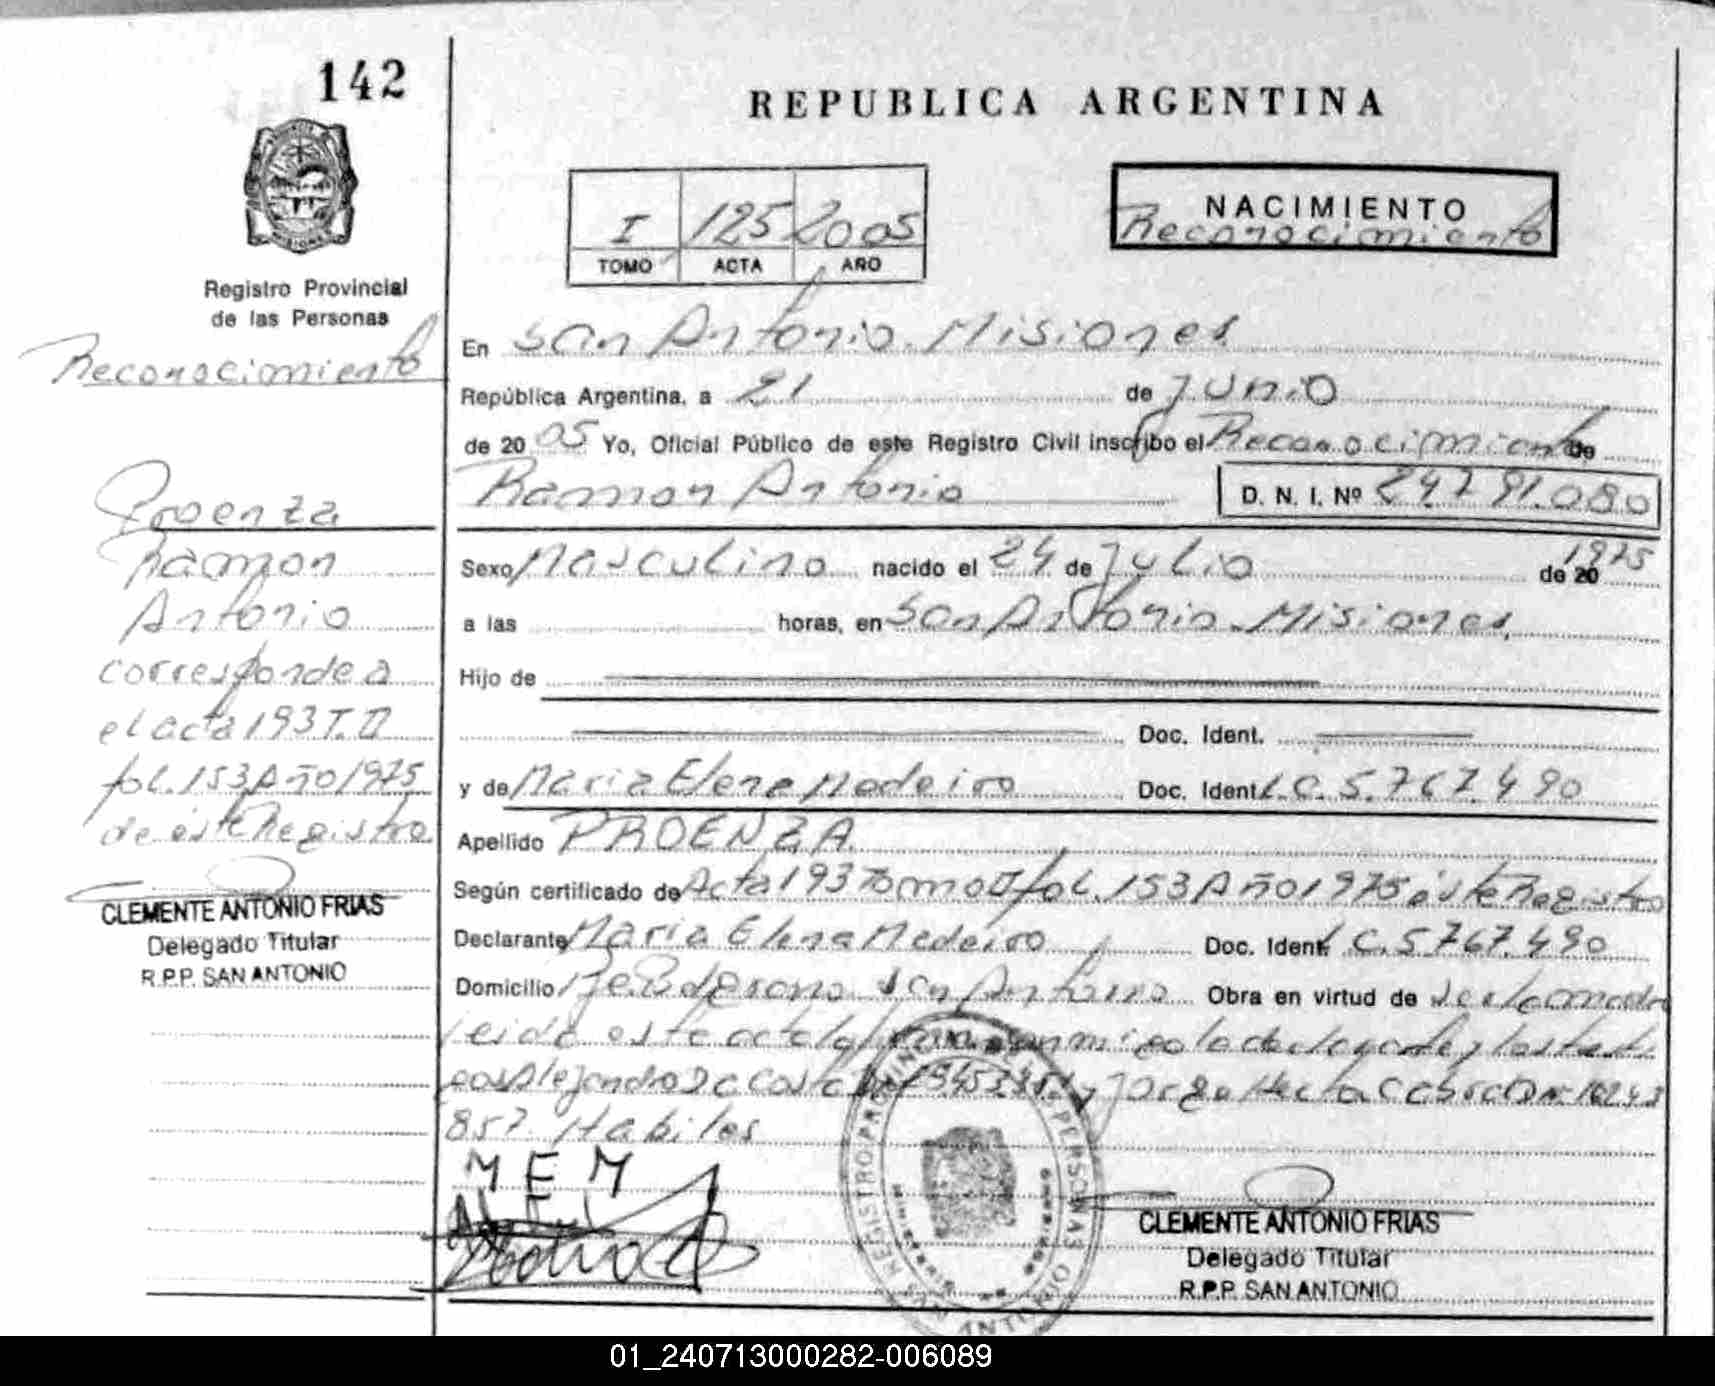 142
REPUBLICA ARGENTINA
I 125 2005
TOMO ACTA AÑO
NACIMIENTO
Reconocimiento
Registro Provincial
de las Personas
Reconocimiento
Proenza
Ramon
Antonio
corresponde a
el acta 193 T. II
fol. 153 Año 1975
de éste Registro
CLEMENTE ANTONIO FRIAS
Delegado Titular
R.P.P. SAN ANTONIO
En San Antonio. Misiones
República Argentina, a 21 de Junio
de 2005 Yo, Oficial Público de este Registro Civil inscribo el Reconocimiento de
Ramon Antonio D. N. I. Nº 24791.080
Sexo Masculino nacido el 24 de Julio de 20 1975
a las horas, en San Antonio - Misiones
Hijo de
Doc. Ident.
y de Maria Elena Medeiro Doc. Ident. L.C. 5.767.490
Apellido PROENZA
Según certificado de Acta 193 Tomo II fol. 153 Año 1975 éste Registro
Declarante Maria Elena Medeiro Doc. Ident. L.C. 5767.490
Domicilio San Antonio Obra en virtud de
leida este acta
Alejandro Da Costa y Jorge
857. Habiles
M E M
REGISTRO PROVINCIAL PERSONAS
SAN ANTONIO
CLEMENTE ANTONIO FRIAS
Delegado Titular
R.P.P. SAN ANTONIO
01_240713000282-006089